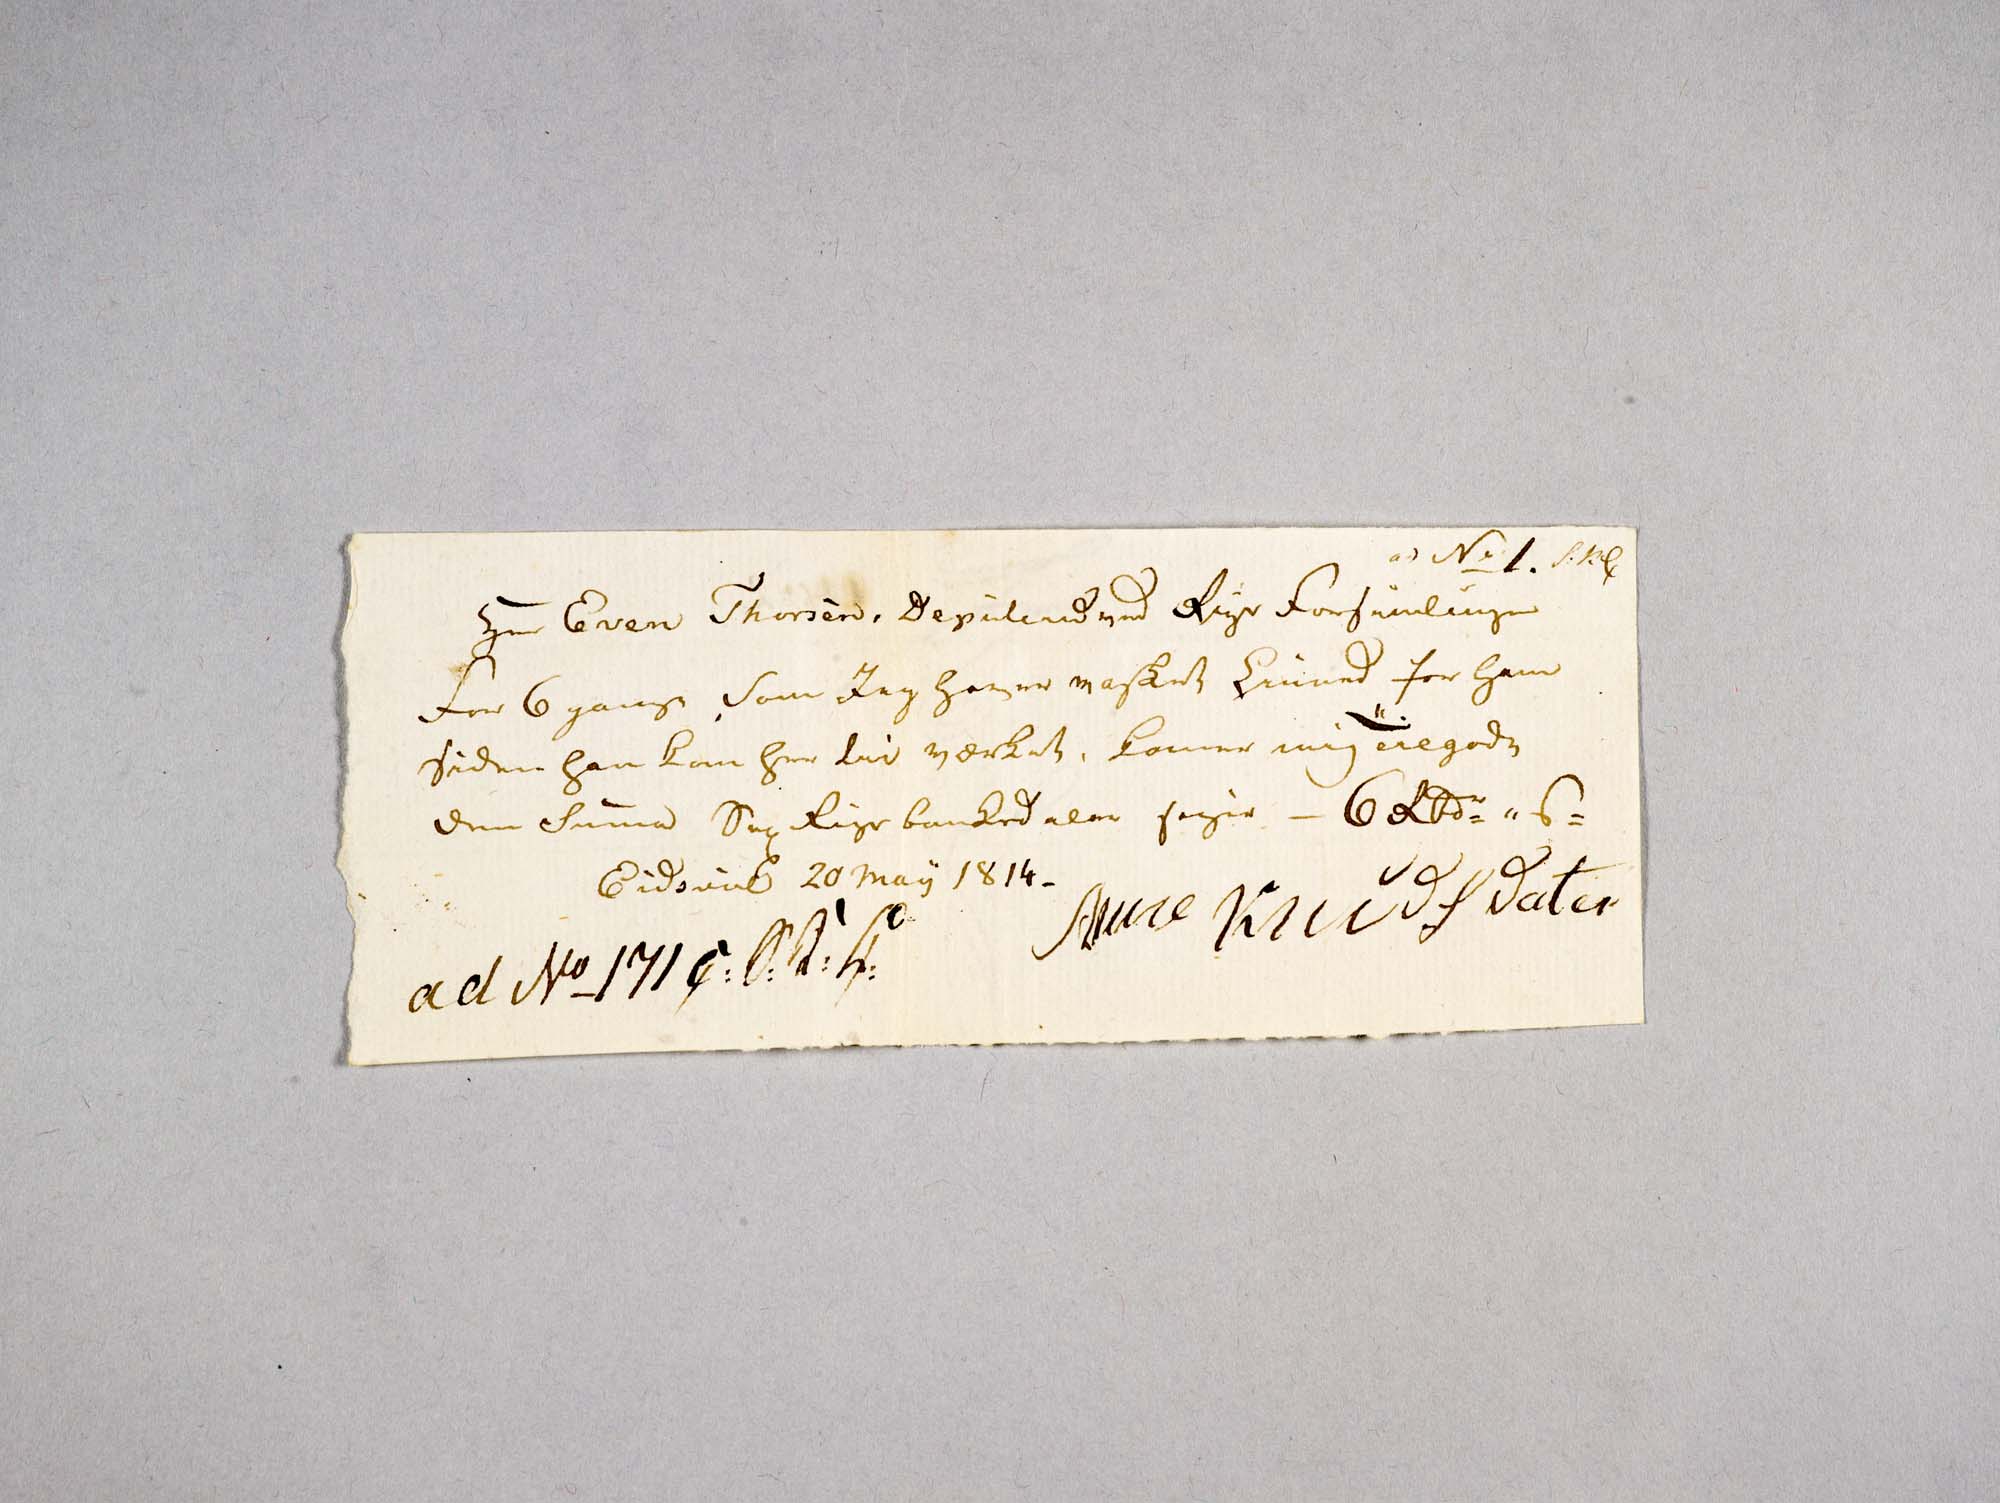 ad No 1.
Hr Even Thorsen, Deputered ved Rigs Forsamlingen
For 6 gange som Jeg haver vasket Linned for ham
siden han kom her til værket, komer mig tilegode
den Suma Sex Rigsbankedaler siger — 6 Rbdr " s
Eidsvol 20 Maÿ 1814 –
Anne Knudsdater
ad No 171